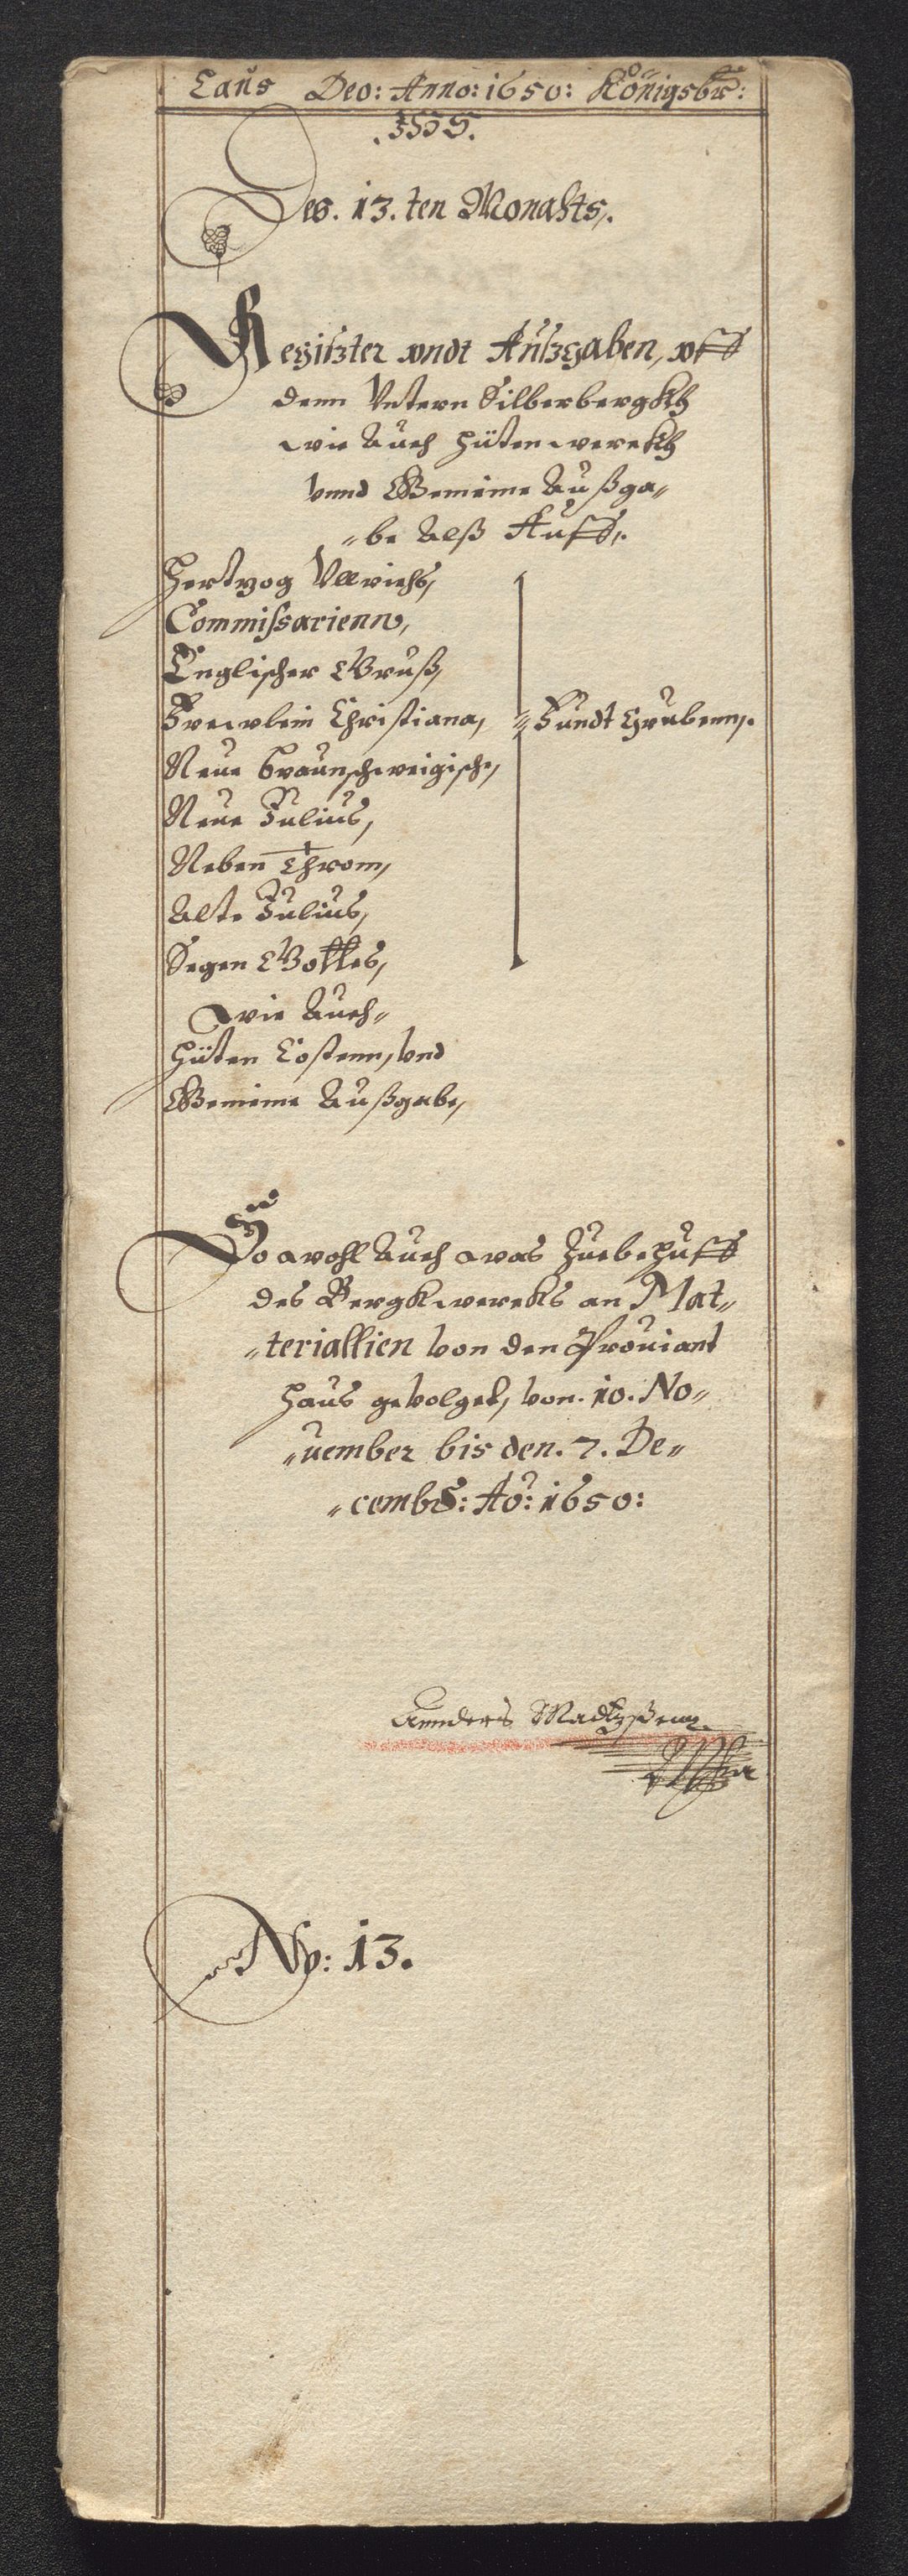 Laus Deo: Anno: 1650: Königsbr:
Des. 13. ten Monahts,.
Regiszter vndt Auszgaben, vff
denn Vntern Silberbergkh
wie Auch Hütenwerekh
vnnd Gemeine Außga„
„be Alß Auff,.
Hertzog Ullrichs,
Commissarienn,
Englischer Gruß,
Frewlein Christiana, „Fundt Grubenn,.
Neue Braunschweigische,
Neue Julius,
Neben Throm,
Alte Julius,
Segen Gottes,
Wie Auch„
Hüten Costenn, vnd
Gemeine Außgabe,
So wohl Auch was Zuebehuff
des Bergkwercks an Mat„
„teriallien von den Prouiant
Haus gevolget, von. 10. No„
„uember bis den. 7. De„
„cembr: Ao: 1650:
Annders
No: 13.